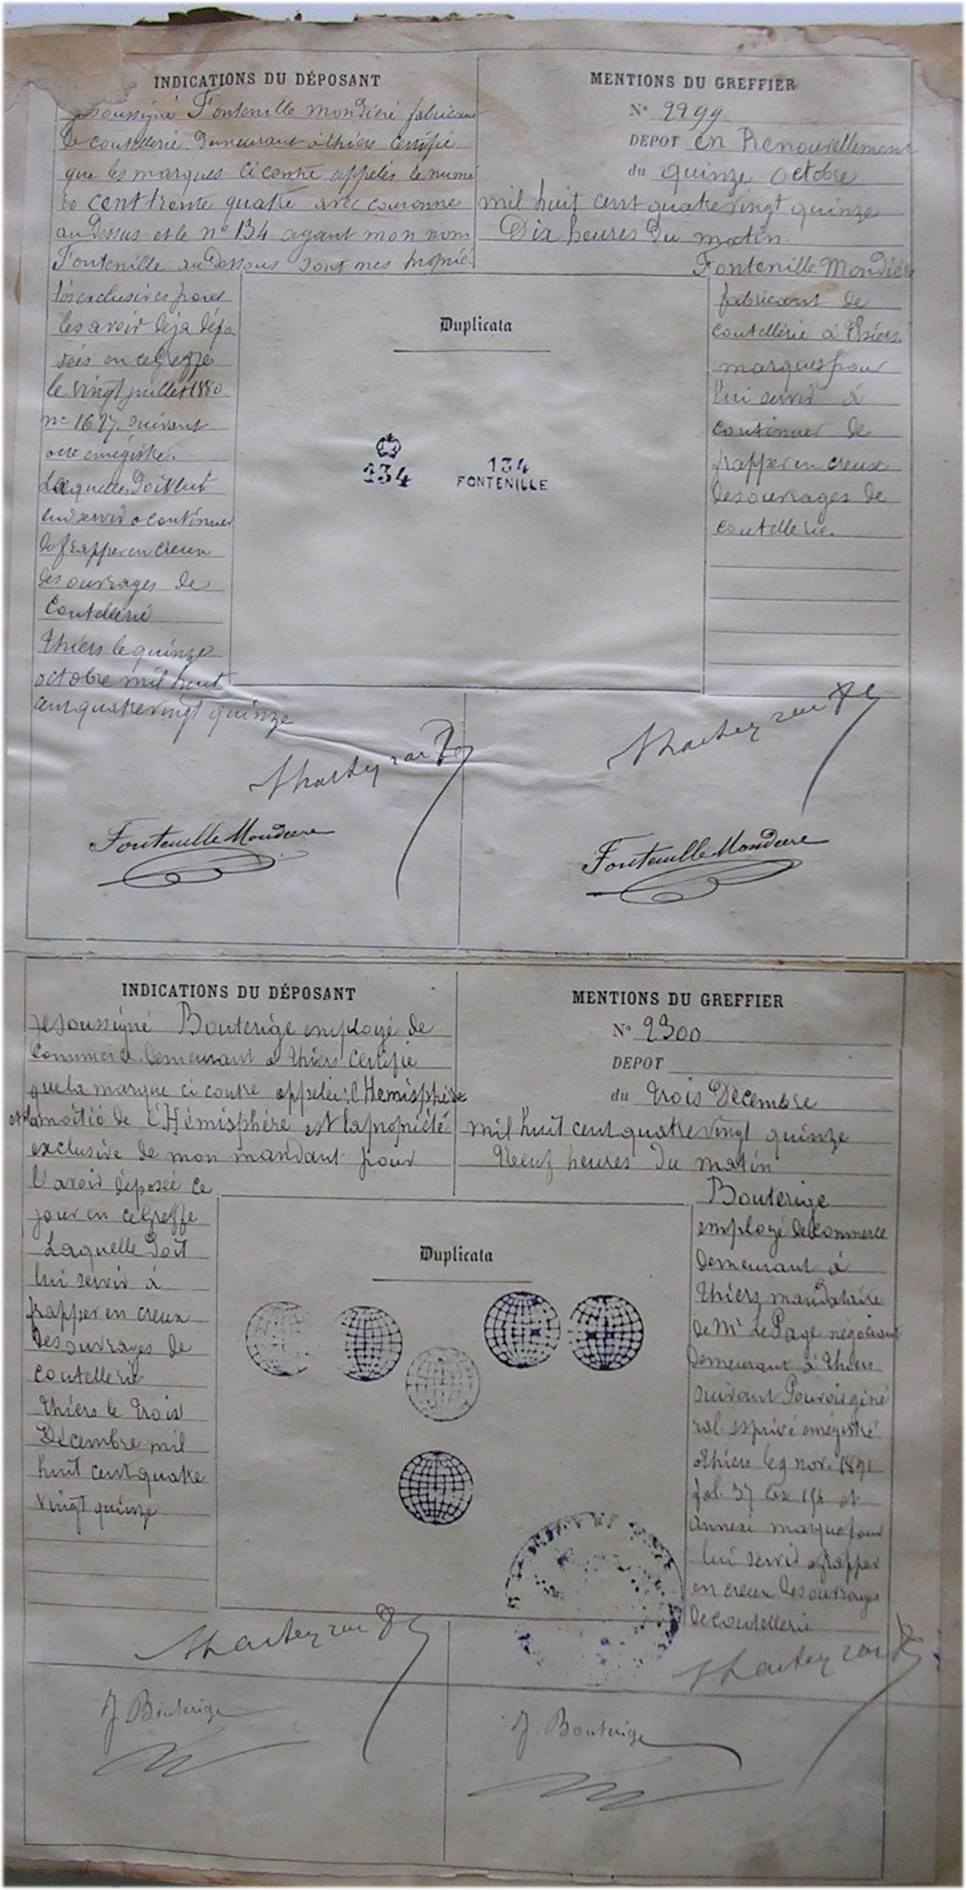 INDICATIONS DU DÉPOSANT
Je soussigné Fontenille mondiére fabricant
de coutellerie Demeurant à thiers certifie
que les marques ci contre appelés le numé
ro cent trente quatre avec couronne
au Dessus et le n° 134 ayant mon nom
Fontenille au Dessous sont mes proprié
tés exclusives pour
les avoir deja dépo
sées en ce Greffe
le vingt juillet 1880
n° 1627 suivant
acte enregistré.
Laquelle Doit
lui servir a continuer
de frapper en creux
des ouvrages de
Coutellerie
thiers le quinze
octobre mil huit
cent quatre vingt quinze
MENTIONS DU GREFFIER
N° 2299
DEPOT en Renouvellement
du quinze octobre
mil huit cent quatre vingt quinze
Dix heures du matin
Fontenille Mondière
fabricant de
coutellerie à thiers
marques pour
lui servir à
continuer de
frapper en creux
des ouvrages de
coutellerie
Duplicata
134
134
FONTENILLE
Fontenille Mondiere
Fontenille Mondiere
INDICATIONS DU DÉPOSANT
Je soussigné Bouterige employé de
commerce Demeurant à thiers certifie
que la marque ci contre appelée: l'Hemisphère
et la moitié de l'Hémisphère est la propriété
exclusive de mon mandant pour
l'avoir déposée ce
jour en ce Greffe
Laquelle Doit
lui servir à
frapper en creux
des ouvrages de
coutellerie
thiers le trois
Décembre mil
huit cent quatre
vingt quinze
MENTIONS DU GREFFIER
N° 2300
DEPOT
du trois Décembre
mil huit cent quatre vingt quinze
Neuf heures du matin
Bouterige
employé de commerce
demeurant à
thiers mandataire
de Mr Le Page négociant
demeurant à thiers
suivant Pouvoir géné
ral s sprivé enregistré
thiers le 9 nov. 1891
fol. 37 et
annexé marque pour
lui servir a frapper
en creux des ouvrages
de coutellerie
Duplicata
J. Bouterige
J. Bouterige